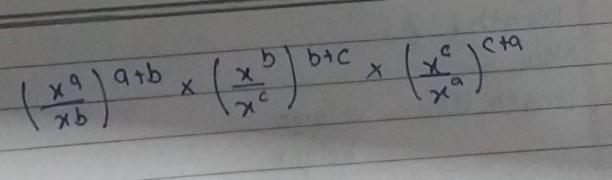 (x^a/x^b)^(a+b) × (x^b/x^c)^(b+c) × (x^c/x^a)^(c+a)